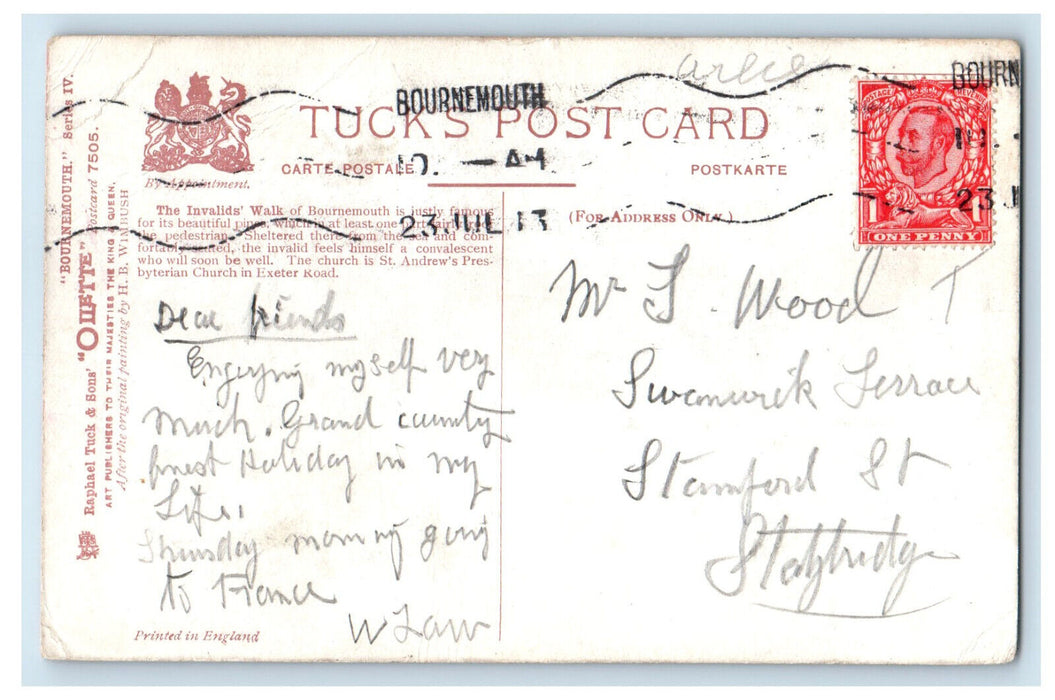 BOURNEMOUTH
10. — AM
23 JUL 13
BOURN
10. -
23 J
POSTAGE REVENUE
1 1
ONE PENNY
TUCK'S POST CARD
CARTE POSTALE
POSTKARTE
By Appointment.
(FOR ADDRESS ONLY.)
"BOURNEMOUTH." Series IV.
Raphael Tuck & Sons' "OILETTE" Postcard 77505.
ART PUBLISHERS TO THEIR MAJESTIES THE KING & QUEEN.
After the original painting by H. B. WIMBUSH
The Invalids' Walk of Bournemouth is justly famous
for its beautiful pines, which in at least one
the pedestrian. Sheltered there from the sea and com-
fortably seated, the invalid feels himself a convalescent
who will soon be well. The church is St. Andrew's Pres-
byterian Church in Exeter Road.
Dear friends
Enjoying myself very
much. Grand county
finest Holiday in my
Life.
Thursday morning going
to France
W Law
Mr T. Wood
Swanwick Terrace
Stamford St
Stalybridge
Printed in England